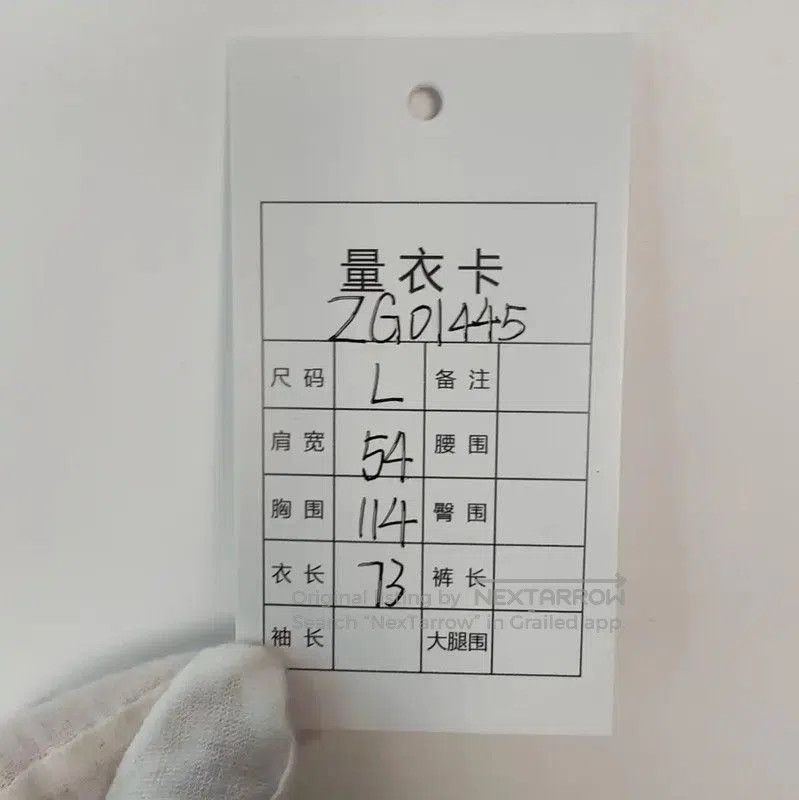 量衣卡
ZG01445
尺码 L 备注
肩宽 54 腰围
胸围 114 臀围
衣长 73 裤长
Original listing by NEXTARROW
Search "NexTarrow" in Grailed app
袖长 大腿围